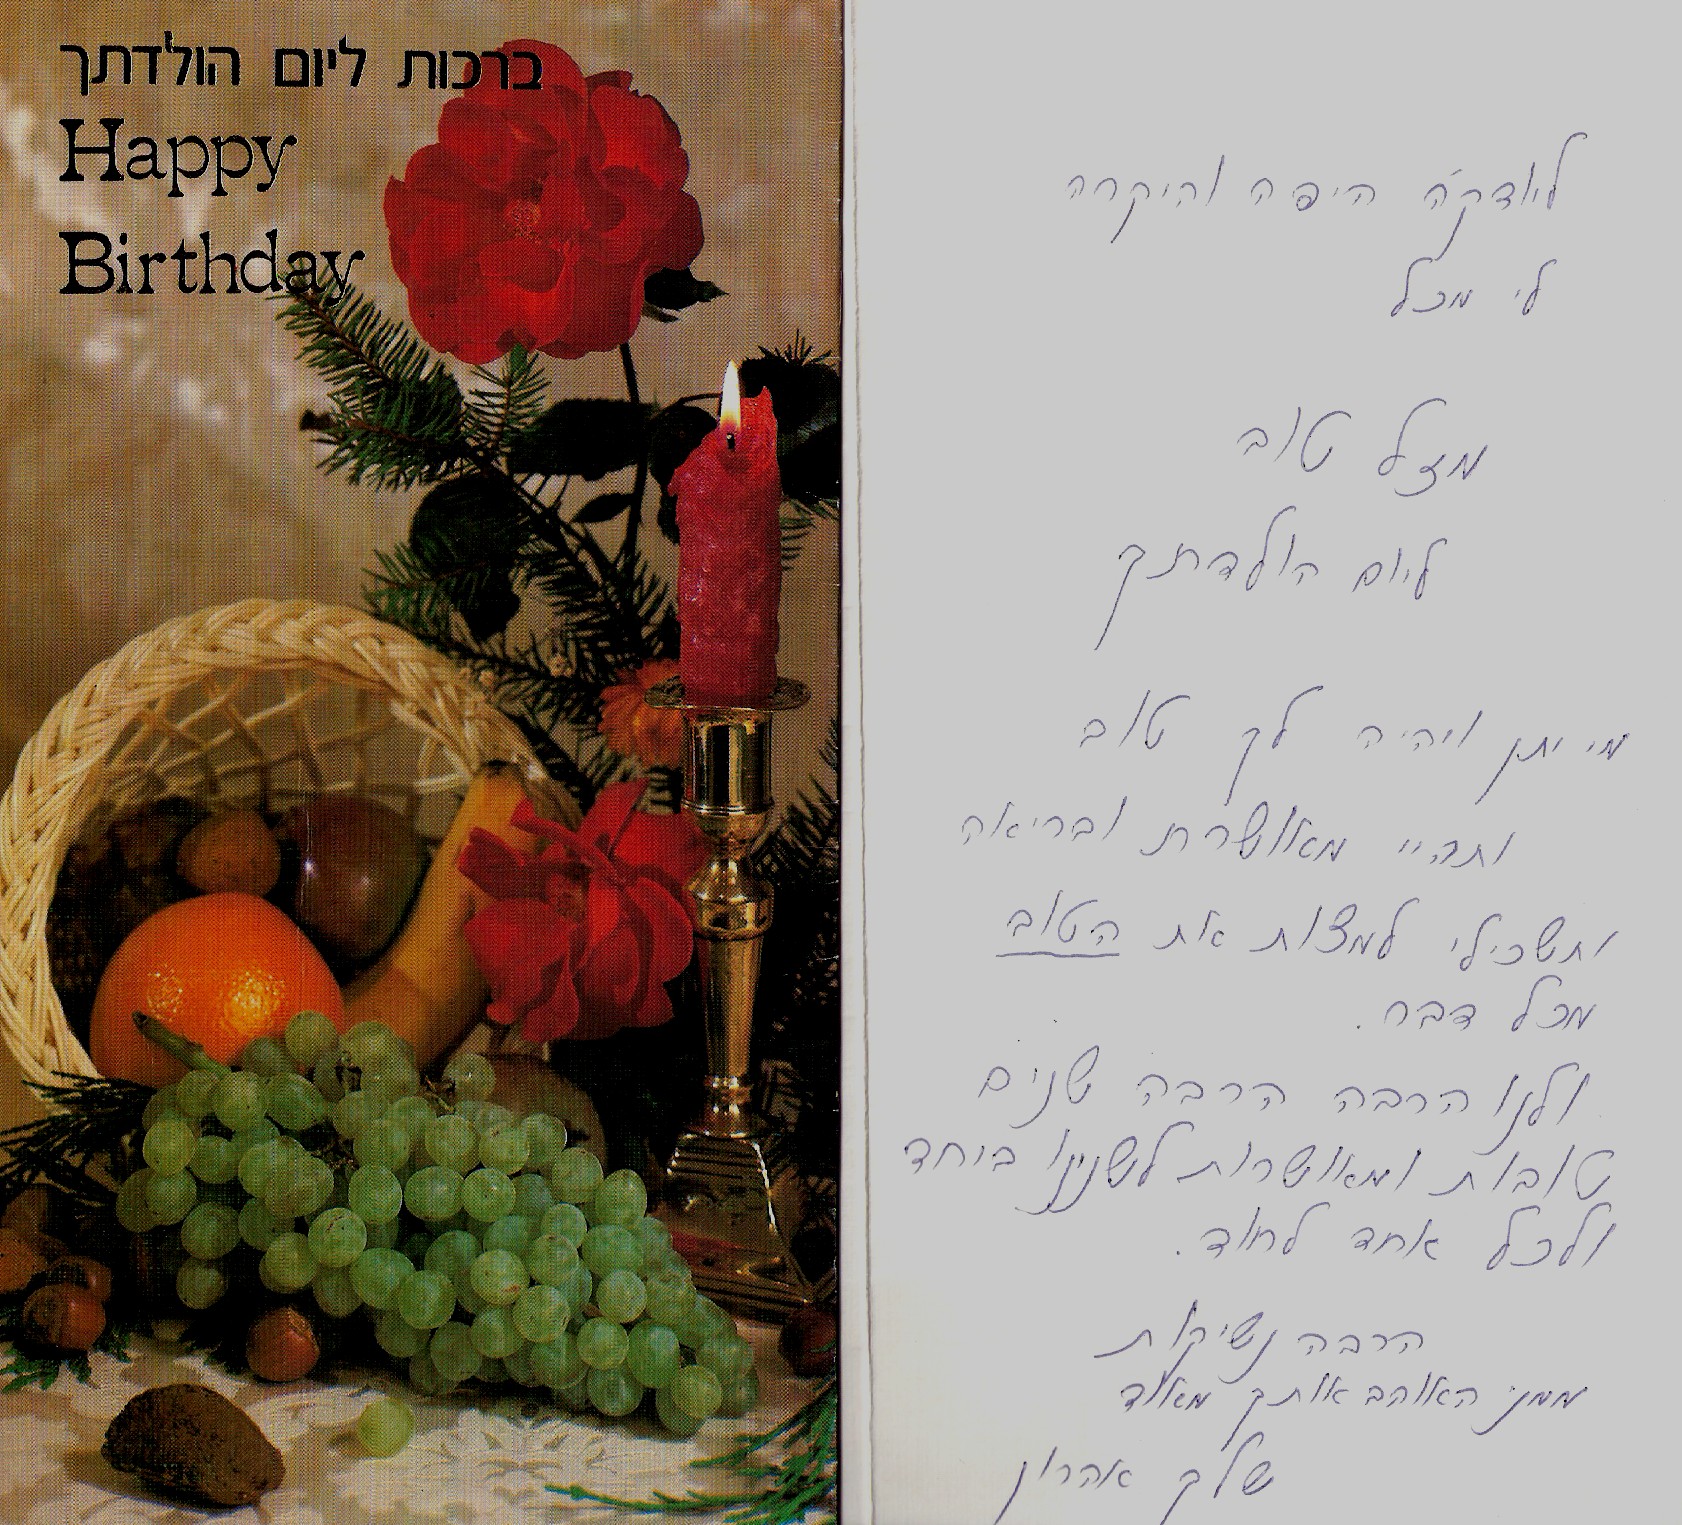 ברכות ליום הולדתך
Happy
Birthday
היפה והיקרה
לי מכל
מזל טוב
ליום הולדתך
מי יתן ויהיה לך טוב
ותהיי מאושרת ובריאה
ותשכילי למצות את הטוב
מכל דבר.
ולנו הרבה הרבה שנים
טובות ומאושרות לשנינו ביחד
ולכל אחד לחוד.
הרבה נשיקות
ממני האוהב אותך מאוד
שלך אהרון